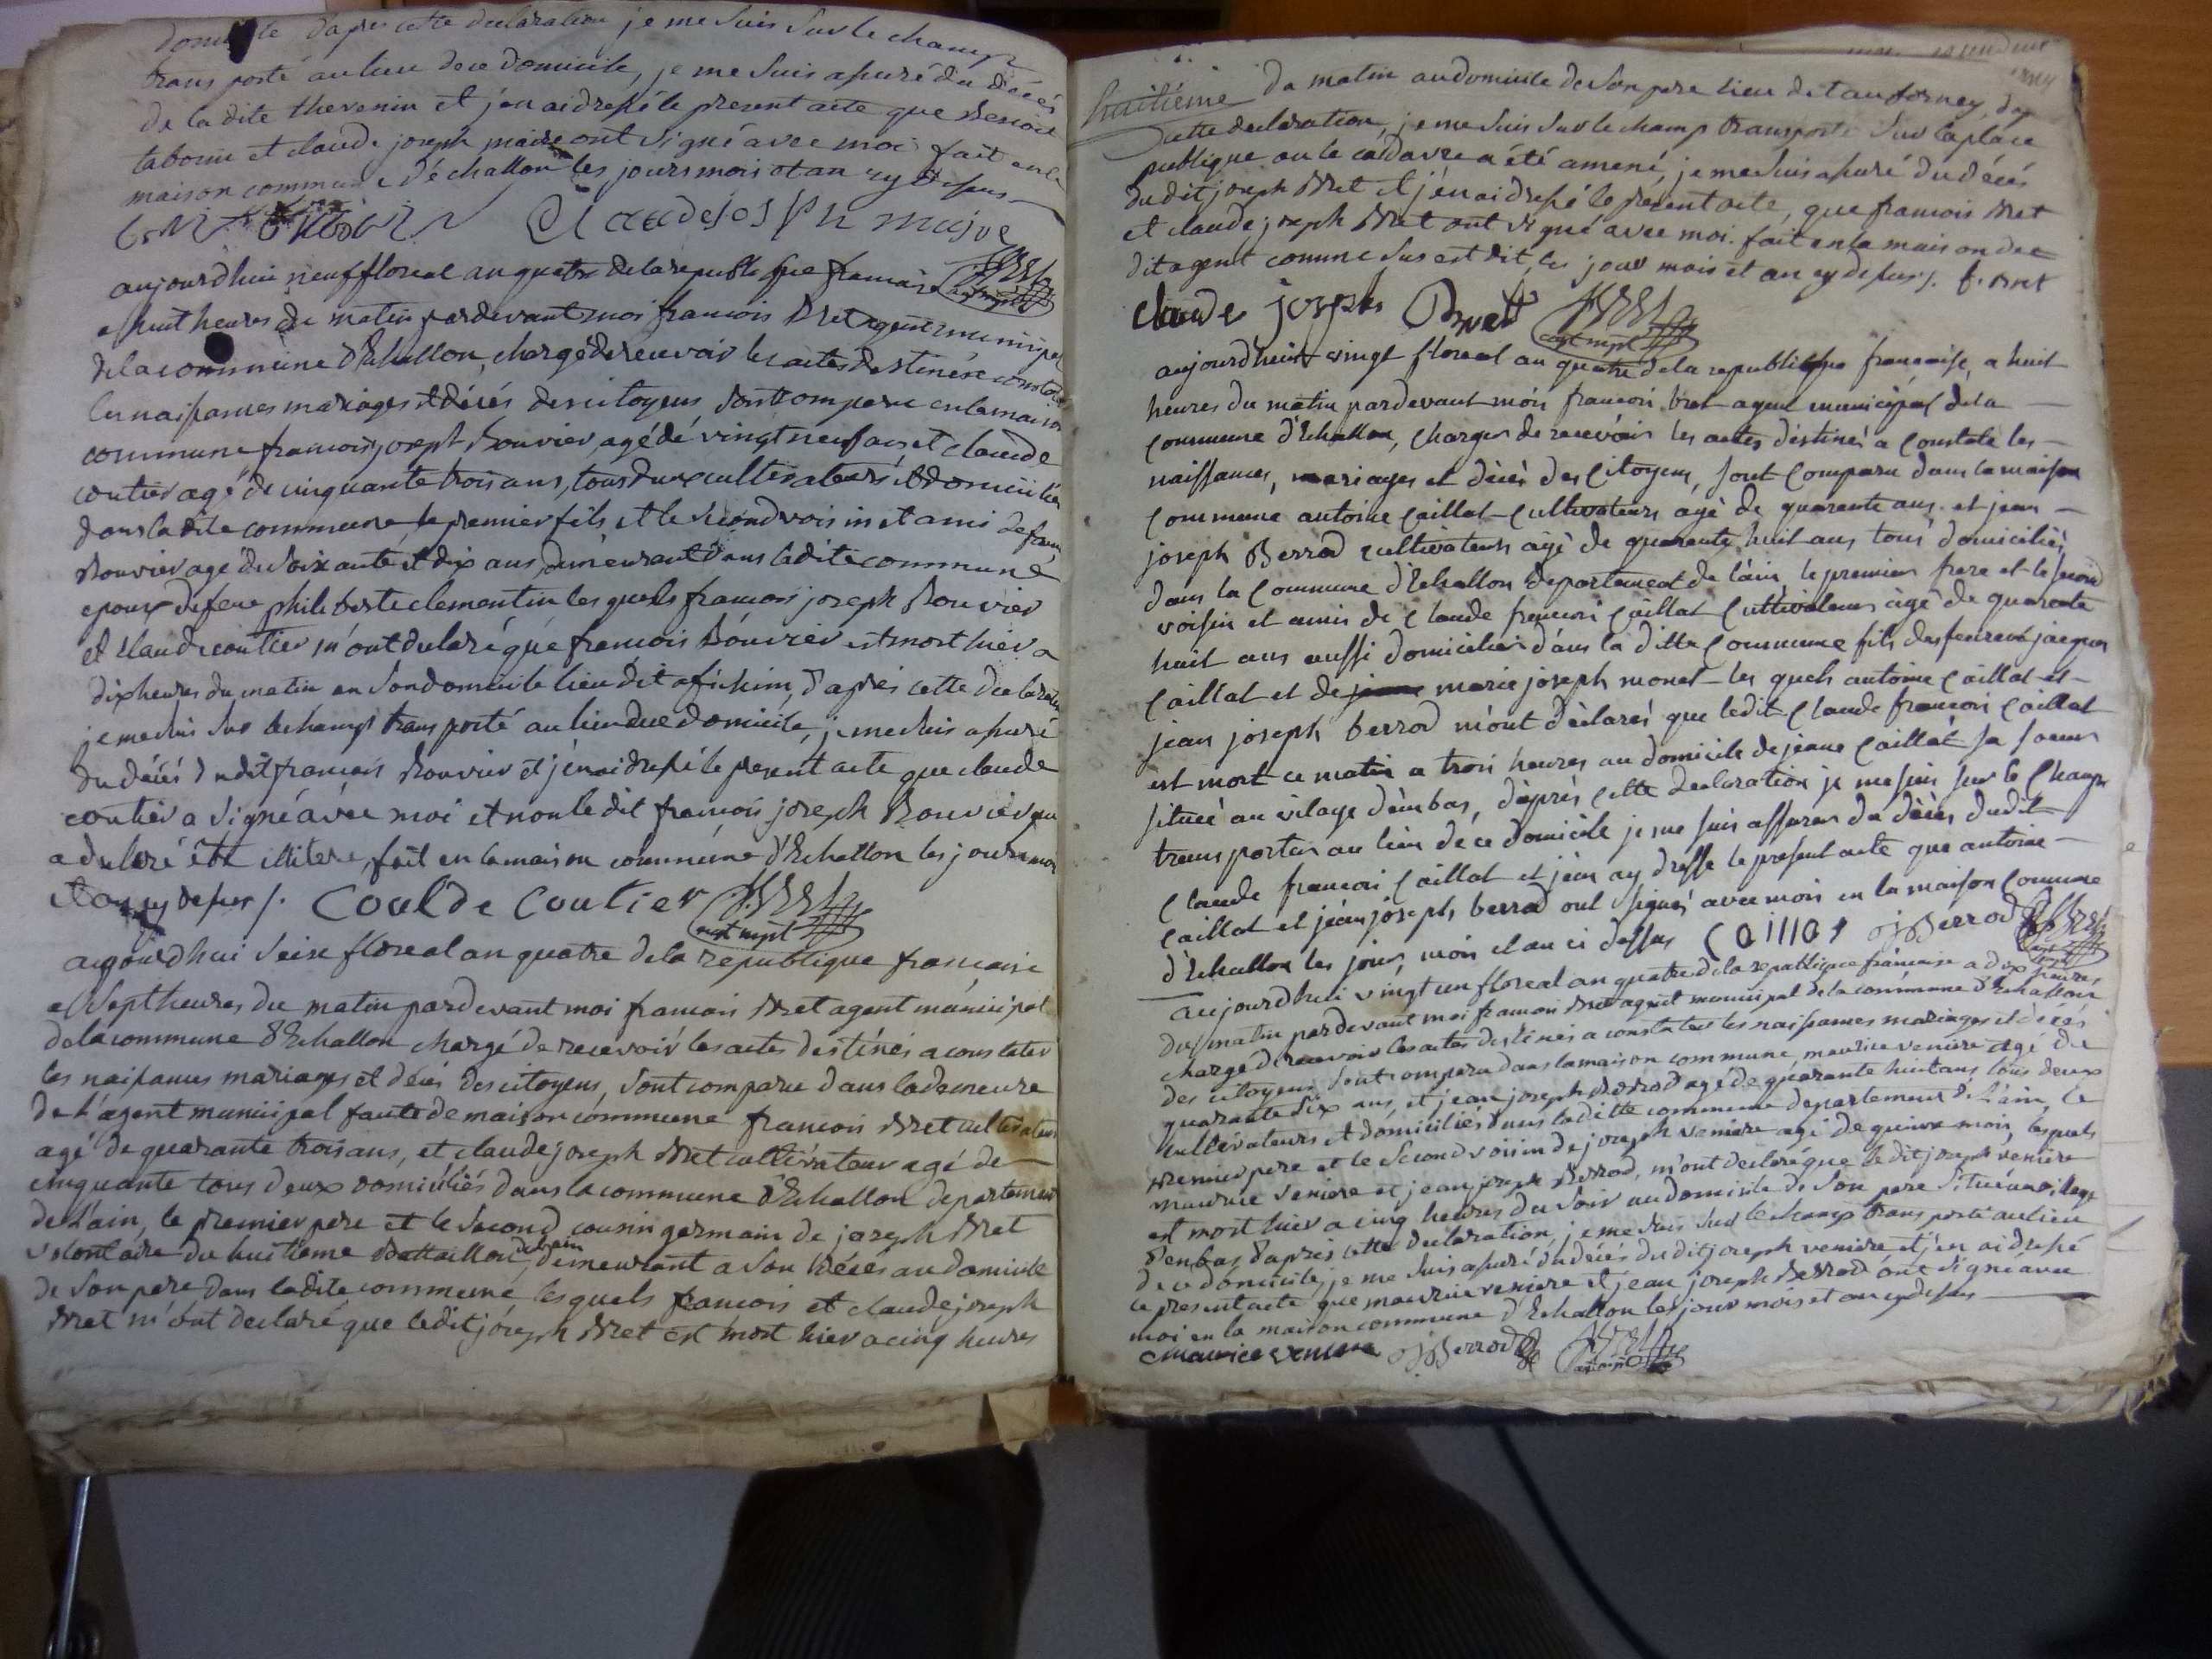 dapres cette declaration je me suis sur le champ
trans porté au lieu de ce domicile, je me suis assuré du décés
de la dite thevenin et j'en ai dressé le present acte que
et claude joseph maire ont signé avec moi fait en la
maison commune d'échallon les jours mois et an cy dessus
Claudejosph majre
aujourdhui neuf floreal an quatre de la republique francaise
a huit heures du matin pardevant moi francois Bret agent municipal
de la commune d'Echallon, chargé de recevoir les actes destinés a constater
les naissances mariages et décés des citoyens, sont comparu en la maison
commune francois joseph Bouvier, agé de vingt neuf ans, et claude
coutier agé de cinquante trois ans, tous deux cultivateurs et domiciliés
dans la dite commune le premier fils et le second voisin et ami de francois
Bouvier agé de soixante et dix ans, demeurant dans ladite commune
epoux de feue philiberte clementin les quels francois joseph Bouvier
et claude coutier m'ont declaré que francois Bouvier est mort hier a
dix heures du matin en son domicile lieu dit, d'aprés cette declaration
je me suis sur le champ transporté au lieu de ce domicile, je me suis assuré
du décés du dit francois Bouvier et j'en ai dressé le present acte que claude
coutier a signé avec moi et non le dit francois joseph Bouvier qui
a declaré être illitere, fait en la maison commune d'Echallon les jours mois
et an cy dessus /. Coulde Coutier Bret agt mpl
aujourdhui seize floreal an quatre de la republique francaise
a sept heures du matin pardevant moi francois Bret agent municipal
de la commune d'Echallon chargé de recevoir les actes destinés a constater
les naissances mariages et décés des citoyens, sont comparu dans la demeure
de l'agent municipal faute de maison commune francois Bret cultivateur
agé de quarante trois ans, et claude joseph Bret cultivateur agé de
cinquante tous deux domiciliés dans la commune d'Echallon departement
de l'ain, le premier pere et le second cousin germain de joseph Bret
volontaire du huitieme Battaillon de l'ain, demeurant a son décés au domicile
de son pere dans ladite commune lesquels francois et claude joseph
Bret m'ont declaré que ledit joseph Bret est mort hier a cinq heures
huitiéme
du matin au domicile de son pere lieu dit au forney, dap
cette declaration, je me suis sur le champ transporté sur la place
publique ou le cadavre a été amené, je me suis assuré du décés
du dit joseph Bret et j'en ai dressé le present acte, que francois Bret
et claude joseph Bret ont signé avec moi. fait en la maison du
dit agent comme sus est dit, les jour mois et an cy dessus /. f. Bret
claude joseph Bret Bret agt mpl
aujourdhuit vingt floreal an quatre de la republique francaise, a huit
heures du matin pardevant moi francoi bret agent municipal dela
commune d'Echallon, charger de recevoir les actes destinés a constate les
naissances, mariages et décès des Citoyens, sont comparu dans la maison
commune antoine Caillat Cultivateurs agé de quarante ans et jean
joseph Berrod cultivateurs agé de quarante huit ans tous domiciliés
dans la Commune d'Echallon departement de lain, le premier frere et le second
voisin et amis de Claude francoi Caillat Cultivateurs agé de quarante
huit ans aussi domicilier dans la ditte Commune fils jacques
Caillat et de jeanne marie joseph monet les quels antoine Caillat et
jean joseph berrod m'ont déclarés que ledit Claude francoi Caillat
est mort ce matin a trois heures au domicile de jeane Caillat sa soeur
située au vilage dembas, d'aprés cette declaration je me suis sur le Champ
transporter au lieu de ce domicile je me suis assurer du décés dudit
Claude francoi Caillat et j'ean ay dresse le present acte que antoine
Caillat et jéan joseph berrod ont signés avec moi en la maison Comune
d'Echallon les jour, mois et an ci dessus Caillat jjBerrod Bret
aujourdhui vingt un floreal an quatre de la republique francaise a dix heures
du matin pardevant moi francois Bret agent municipal de la commune d'Echallon
chargé de recevoir les actes destinés a constater les naissances mariages et décés
des citoyens, sont comparu dans la maison commune, maurice veniere agé de
quarante six ans, et jean joseph Berrod agé de quarante huit ans tous deux
cultivateurs et domiciliés dans ladite commune departement de l'ain, le
premier pere et le second voisin de joseph veniere agé de quinze mois, lesquels
maurice veniere et jean joseph Berrod, m'ont declaré que le dit joseph veniere
est mort hier a cinq heures du soir au domicile de son pere situé au village
d'enbas, d'aprés cette declaration, je me suis sur le champ trans porté au lieu
de ce domicile, je me suis assuré du décés du dit joseph veniere et j'en ai dressé
le present acte que maurice veniere et jean joseph Berrod ont signé avec
moi en la maison commune d'Echallon les jour mois et an cy dessus
maurice veniere jjBerrod Bret agt mpl